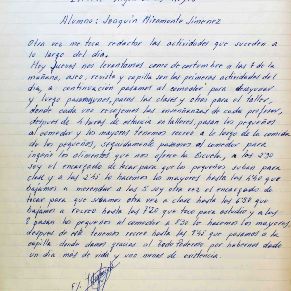 Alumno: Joaquín Miramonte Jimenez
Otra vez me toca redactar las actividades que suceden a
lo largo del dia.
Hoy Jueves nos levantamos como de costumbre a las 7 de la
mañana, aseo, revista y capilla son las primeras actividades del
dia, a continuación pasamos al comedor para desayunar
y luego para unos las clases y otros para el taller,
donde cada uno recogemos las enseñanzas de cada profesor,
despues de 4 horas de estancia en talleres, pasan los pequeños
al comedor y los mayores tenemos recreo a lo largo de la comida
de los pequeños, seguidamente pasamos al comedor para
ingerir los alimentos que nos ofrece la Escuela, a las 2'30
soy el encargado de tocar para que los pequeños suban para
clase y a las 2'45 lo hacemos los mayores hasta las 4'40 que
bajamos a merendar a las 5 soy otra vez el encargado de
tocar para que subamos otra vez a clase hasta las 6'50 que
bajamos a recreo hasta las 7'20 que toco para estudio y a las
8 pasan los pequeños al comedor a 8'30 lo hacemos los mayores,
despues de este tenemos recreo hasta las 9'45 que pasamos a la
capilla donde damos gracias al todo Poderoso por habernos dado
un dia mas de vida y una mas de existencia.